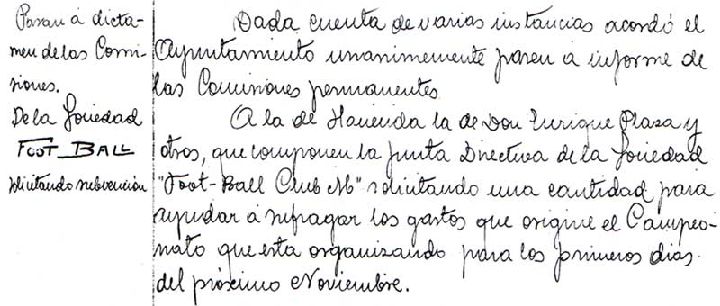 Pasan á dicta-
men de las Comi-
siones.
De la Sociedad
FOOT BALL
solicitando subvención
Dada cuenta de varias instancias acordó el
Ayuntamiento unanimemente pasen a informe de
las Comisiones permanentes
A la de Hacienda la de Don Enrique Plaza y
otros, que componen la Junta Directiva de la Sociedad
"Foot-Ball Club M" solicitando una cantidad para
ayudar á sufragar los gastos que origine el Campeo-
nato que esta organizando para los primeros dias
del próximo Noviembre.